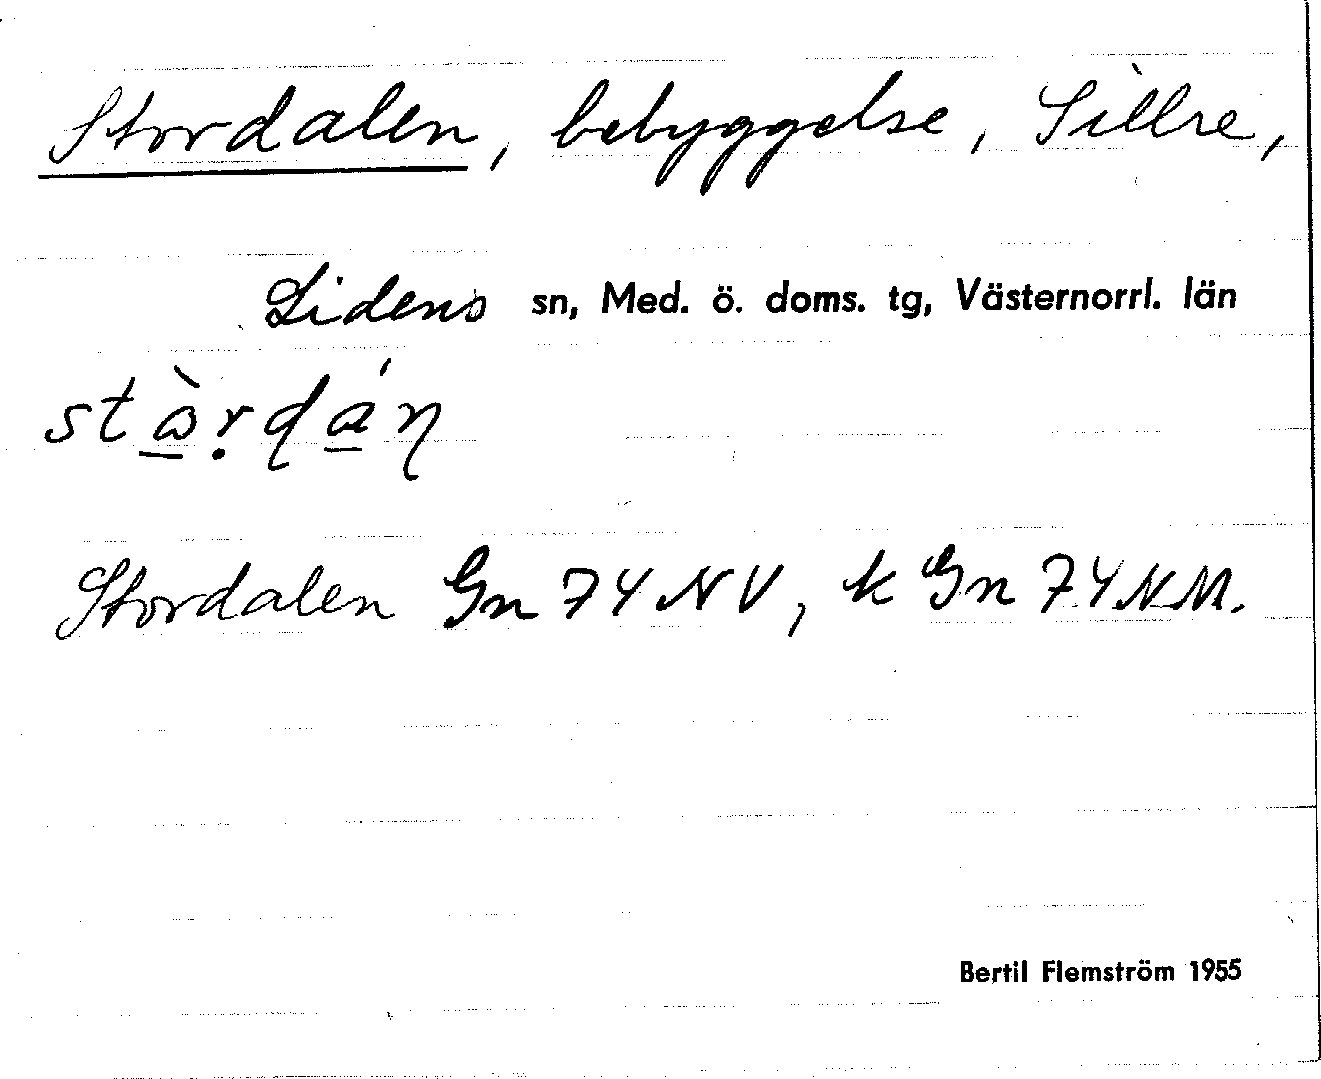 Stordalen, bebyggelse, Sillre,
Lidens sn, Med. ö. doms. tg, Västernorrl. län
Stordalen Gn 74 NV, k Gn 74 NM.
Bertil Flemström 1955